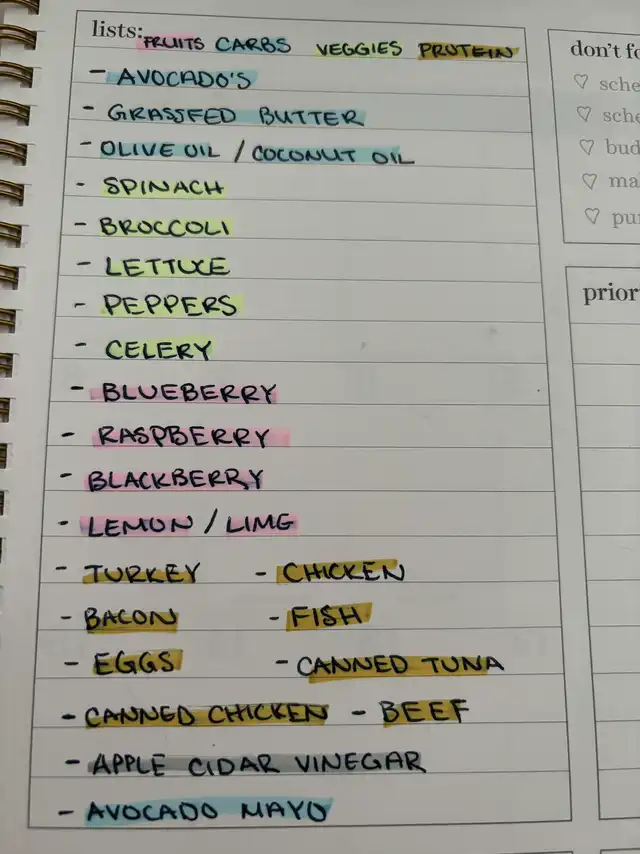 lists: FRUITS CARBS VEGGIES PROTEIN
- AVOCADO'S
- GRASSFED BUTTER
- OLIVE OIL / COCONUT OIL
- SPINACH
- BROCCOLI
- LETTUCE
- PEPPERS
- CELERY
- BLUEBERRY
- RASPBERRY
- BLACKBERRY
- LEMON / LIMG
- TURKEY - CHICKEN
- BACON - FISH
- EGGS - CANNED TUNA
- CANNED CHICKEN - BEEF
- APPLE CIDAR VINEGAR
- AVOCADO MAYO
don't fo
♡ sche
♡ sche
♡ bud
♡ ma
♡ pu
prior